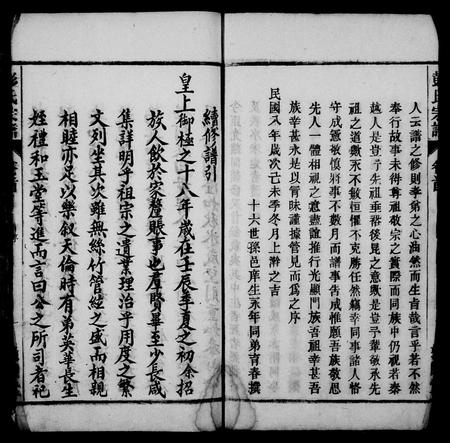 人云譜之修則孝弟之心油然而生旨哉言乎若不然
奉行故事未得尊祖敬宗之實際而同族中仍視若秦
越人是豈予先祖垂裕後昆之意歟是豈子輩敬承先
祖之道歟永不敏恒懼不克勝任然竊幸同事諸人恪
守成憲敏慎將事不數月而譜事告成惟願吾族敬思
先人一體相視之意盡誼推行光顯門族吾祖幸甚吾
族幸甚永是以冒昧謹據管見而為之序
民國八年歲次己未季冬月上澣之吉
十六世孫邑庠生永年同弟育春撰
續修譜引
皇上御極之十八年歲在壬辰季夏之初余招
族人飲於家釐賬事也羣賢畢至少長咸
集詳明乎祖宗之遺業理治乎用度之繁
文列坐其次雖無絲竹管絃之盛而相親
相睦亦足以樂叙天倫時有弟英華長生
姪禮和玉堂等進而言曰公之所司者祀